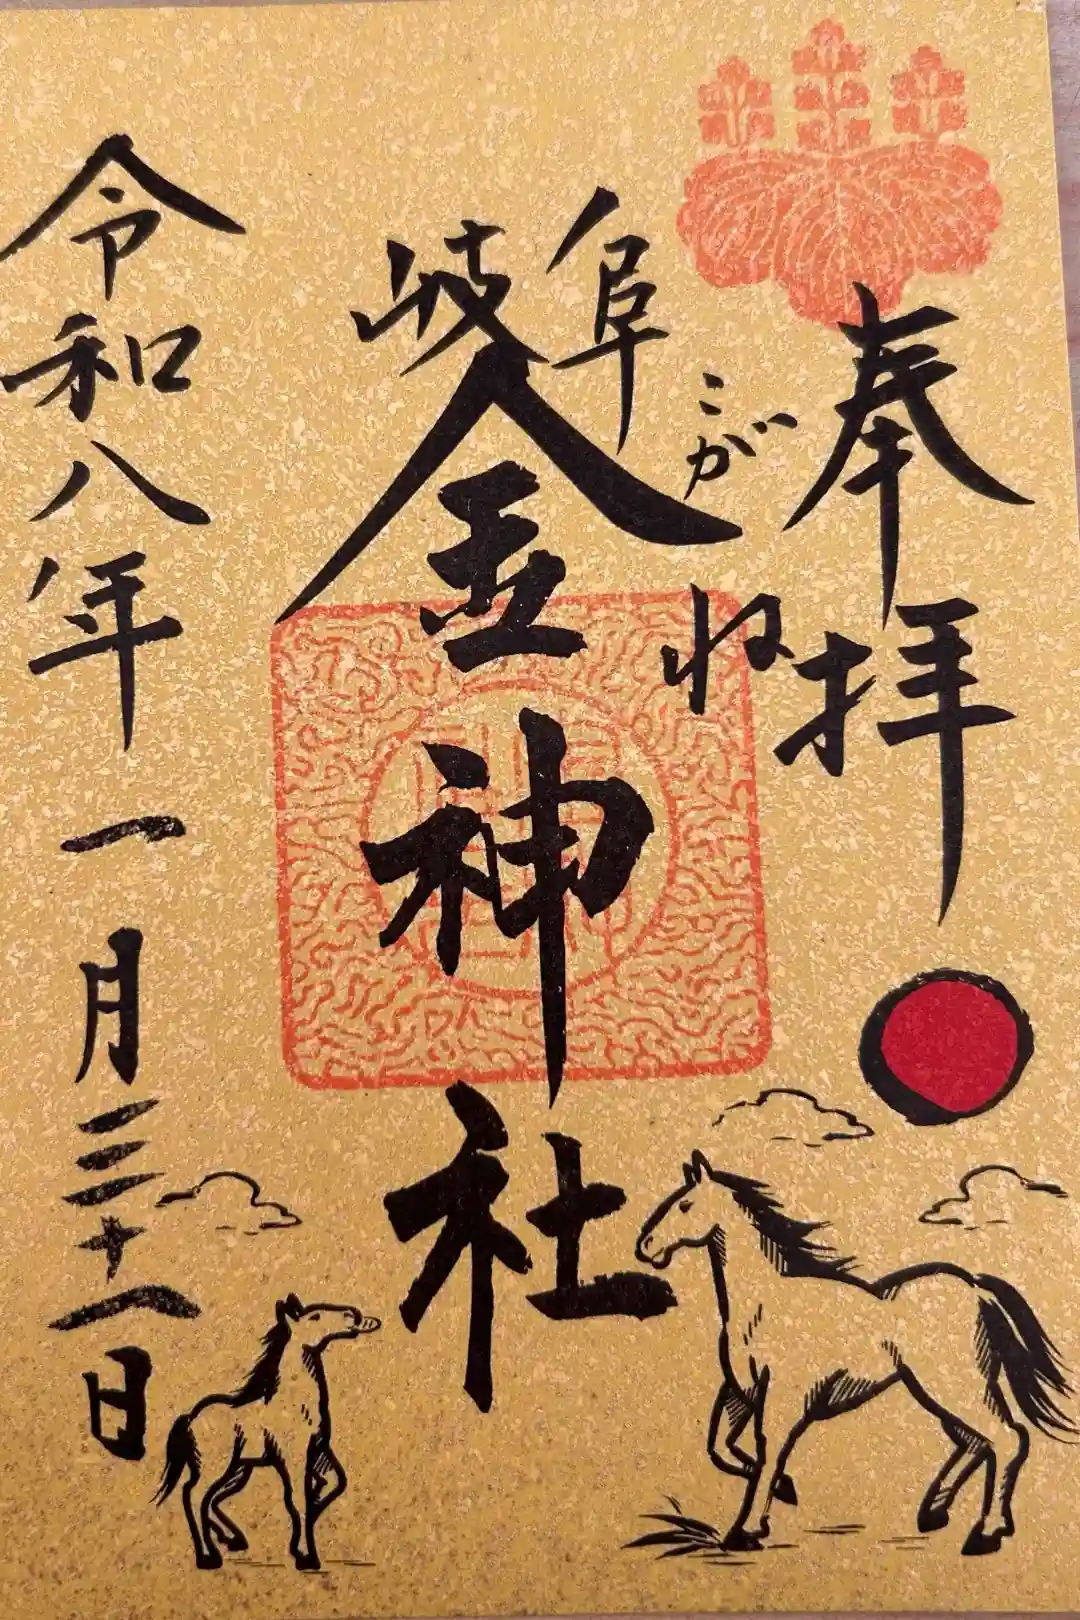 奉拝
岐阜
こがね
金神社
令和八年一月三十一日